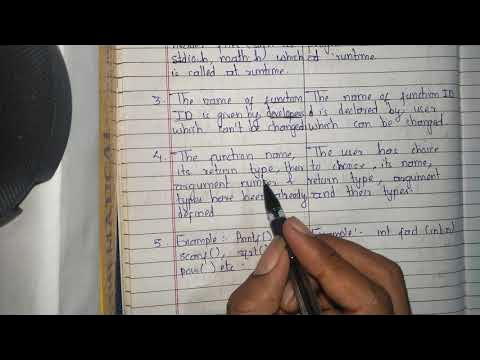 stdio.h, math.h which at runtime
is called at runtime.
3. The name of function The name of function ID
ID is given by developers d is declared by user
which can't be changed which can be changed.
4. The function name, The user has choice
its return type, their to choose its name,
argument number & return type, argument
types have been already and their types.
defined
5. Example :- Printf() Example :- int fact (int n)
scanf(), sqrt()
pow() etc.